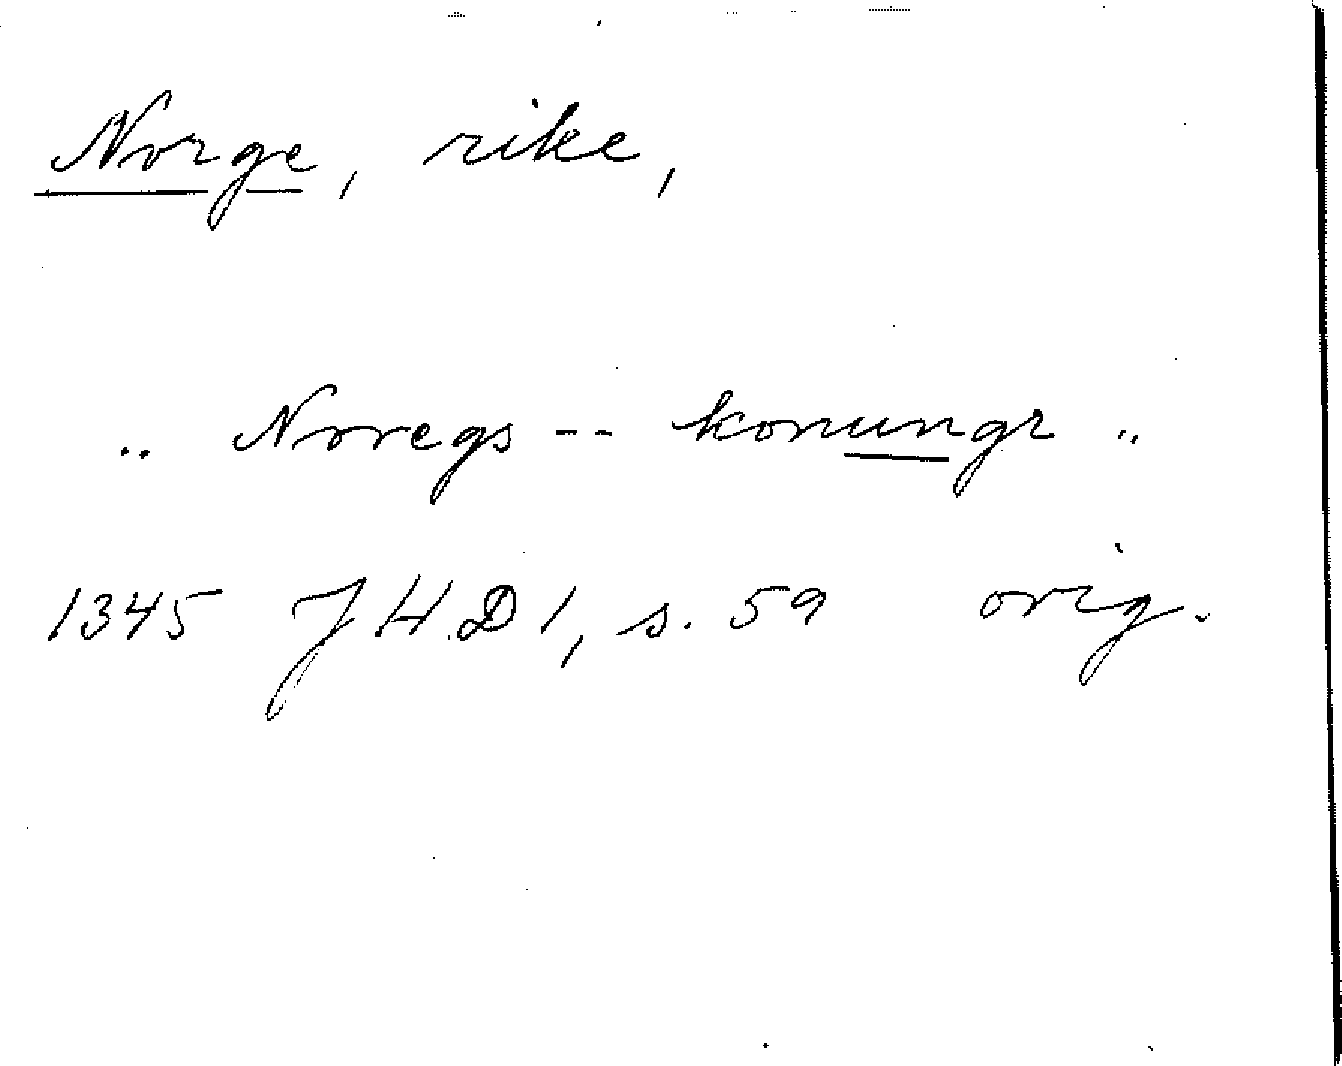 Norge, rike,
.. Noregs -- konungr ..
1345 JHD 1, s. 59 orig.